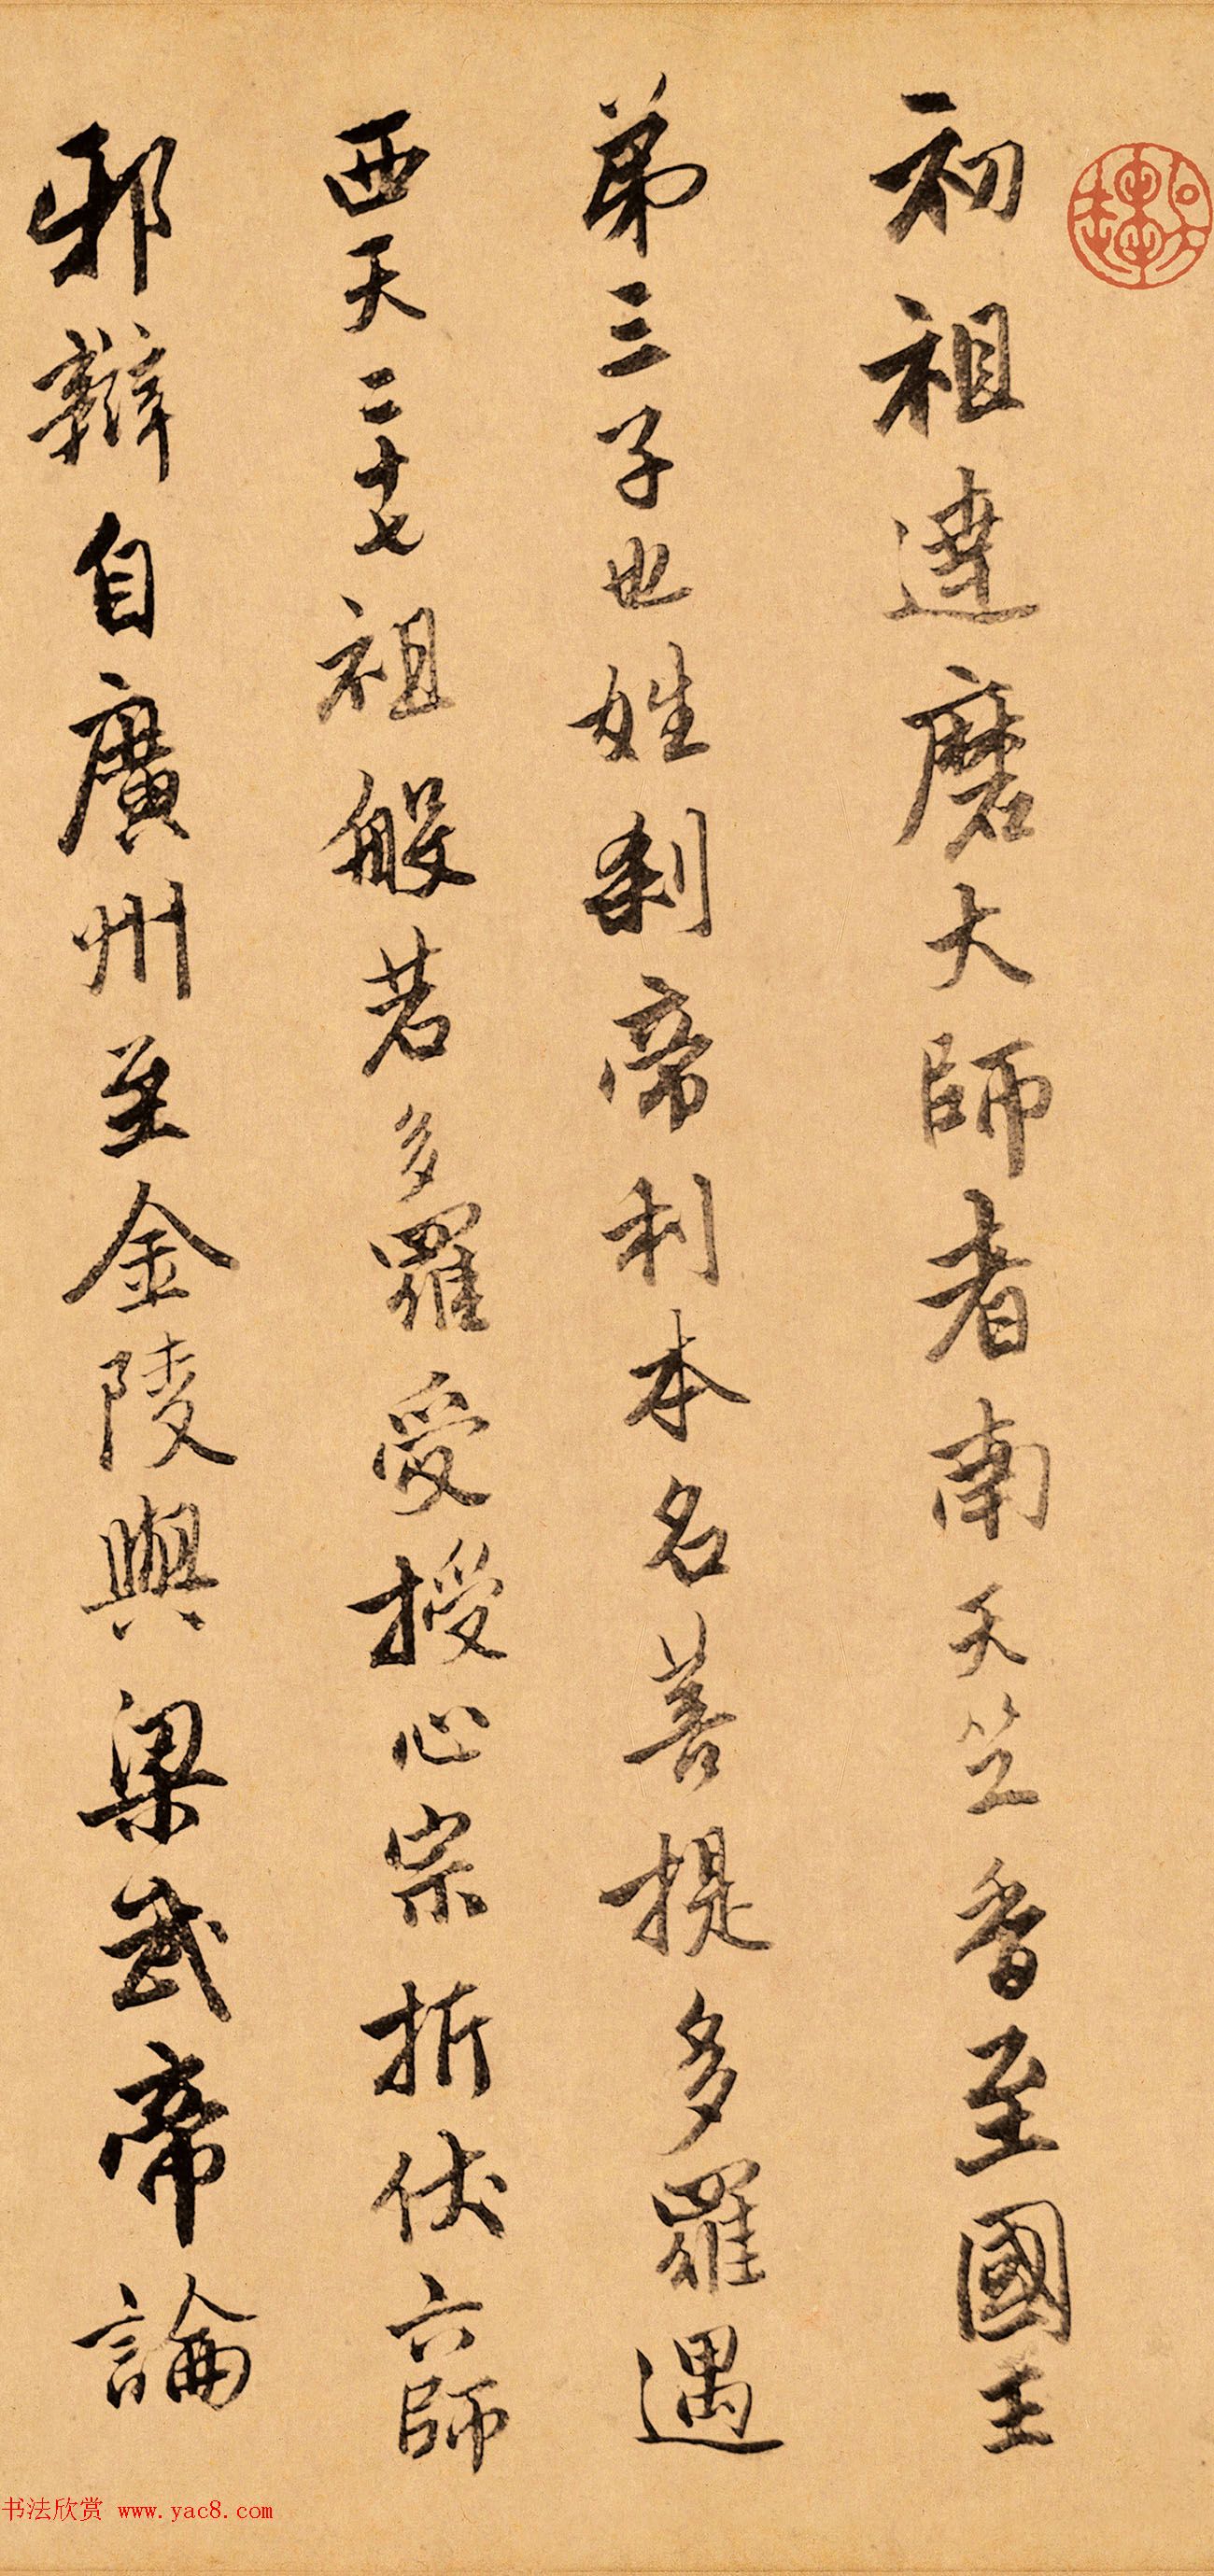 初祖達磨大師者南天竺香至國王
弟三子也姓刹帝利本名菩提多羅遇
西天二十七祖般若多羅受授心宗折伏六師
邪辯自廣州至金陵與梁武帝論
书法欣赏 www.yac8.com